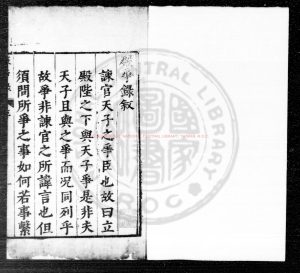 爭錄叙
諫官天子之爭臣也故曰立
殿陛之下與天子爭是非夫
天子且與之爭而況同列乎
故爭非諫官之所諱言也但
須問所爭之事如何若事繫
CENTRAL LIBRARY
R.O.C